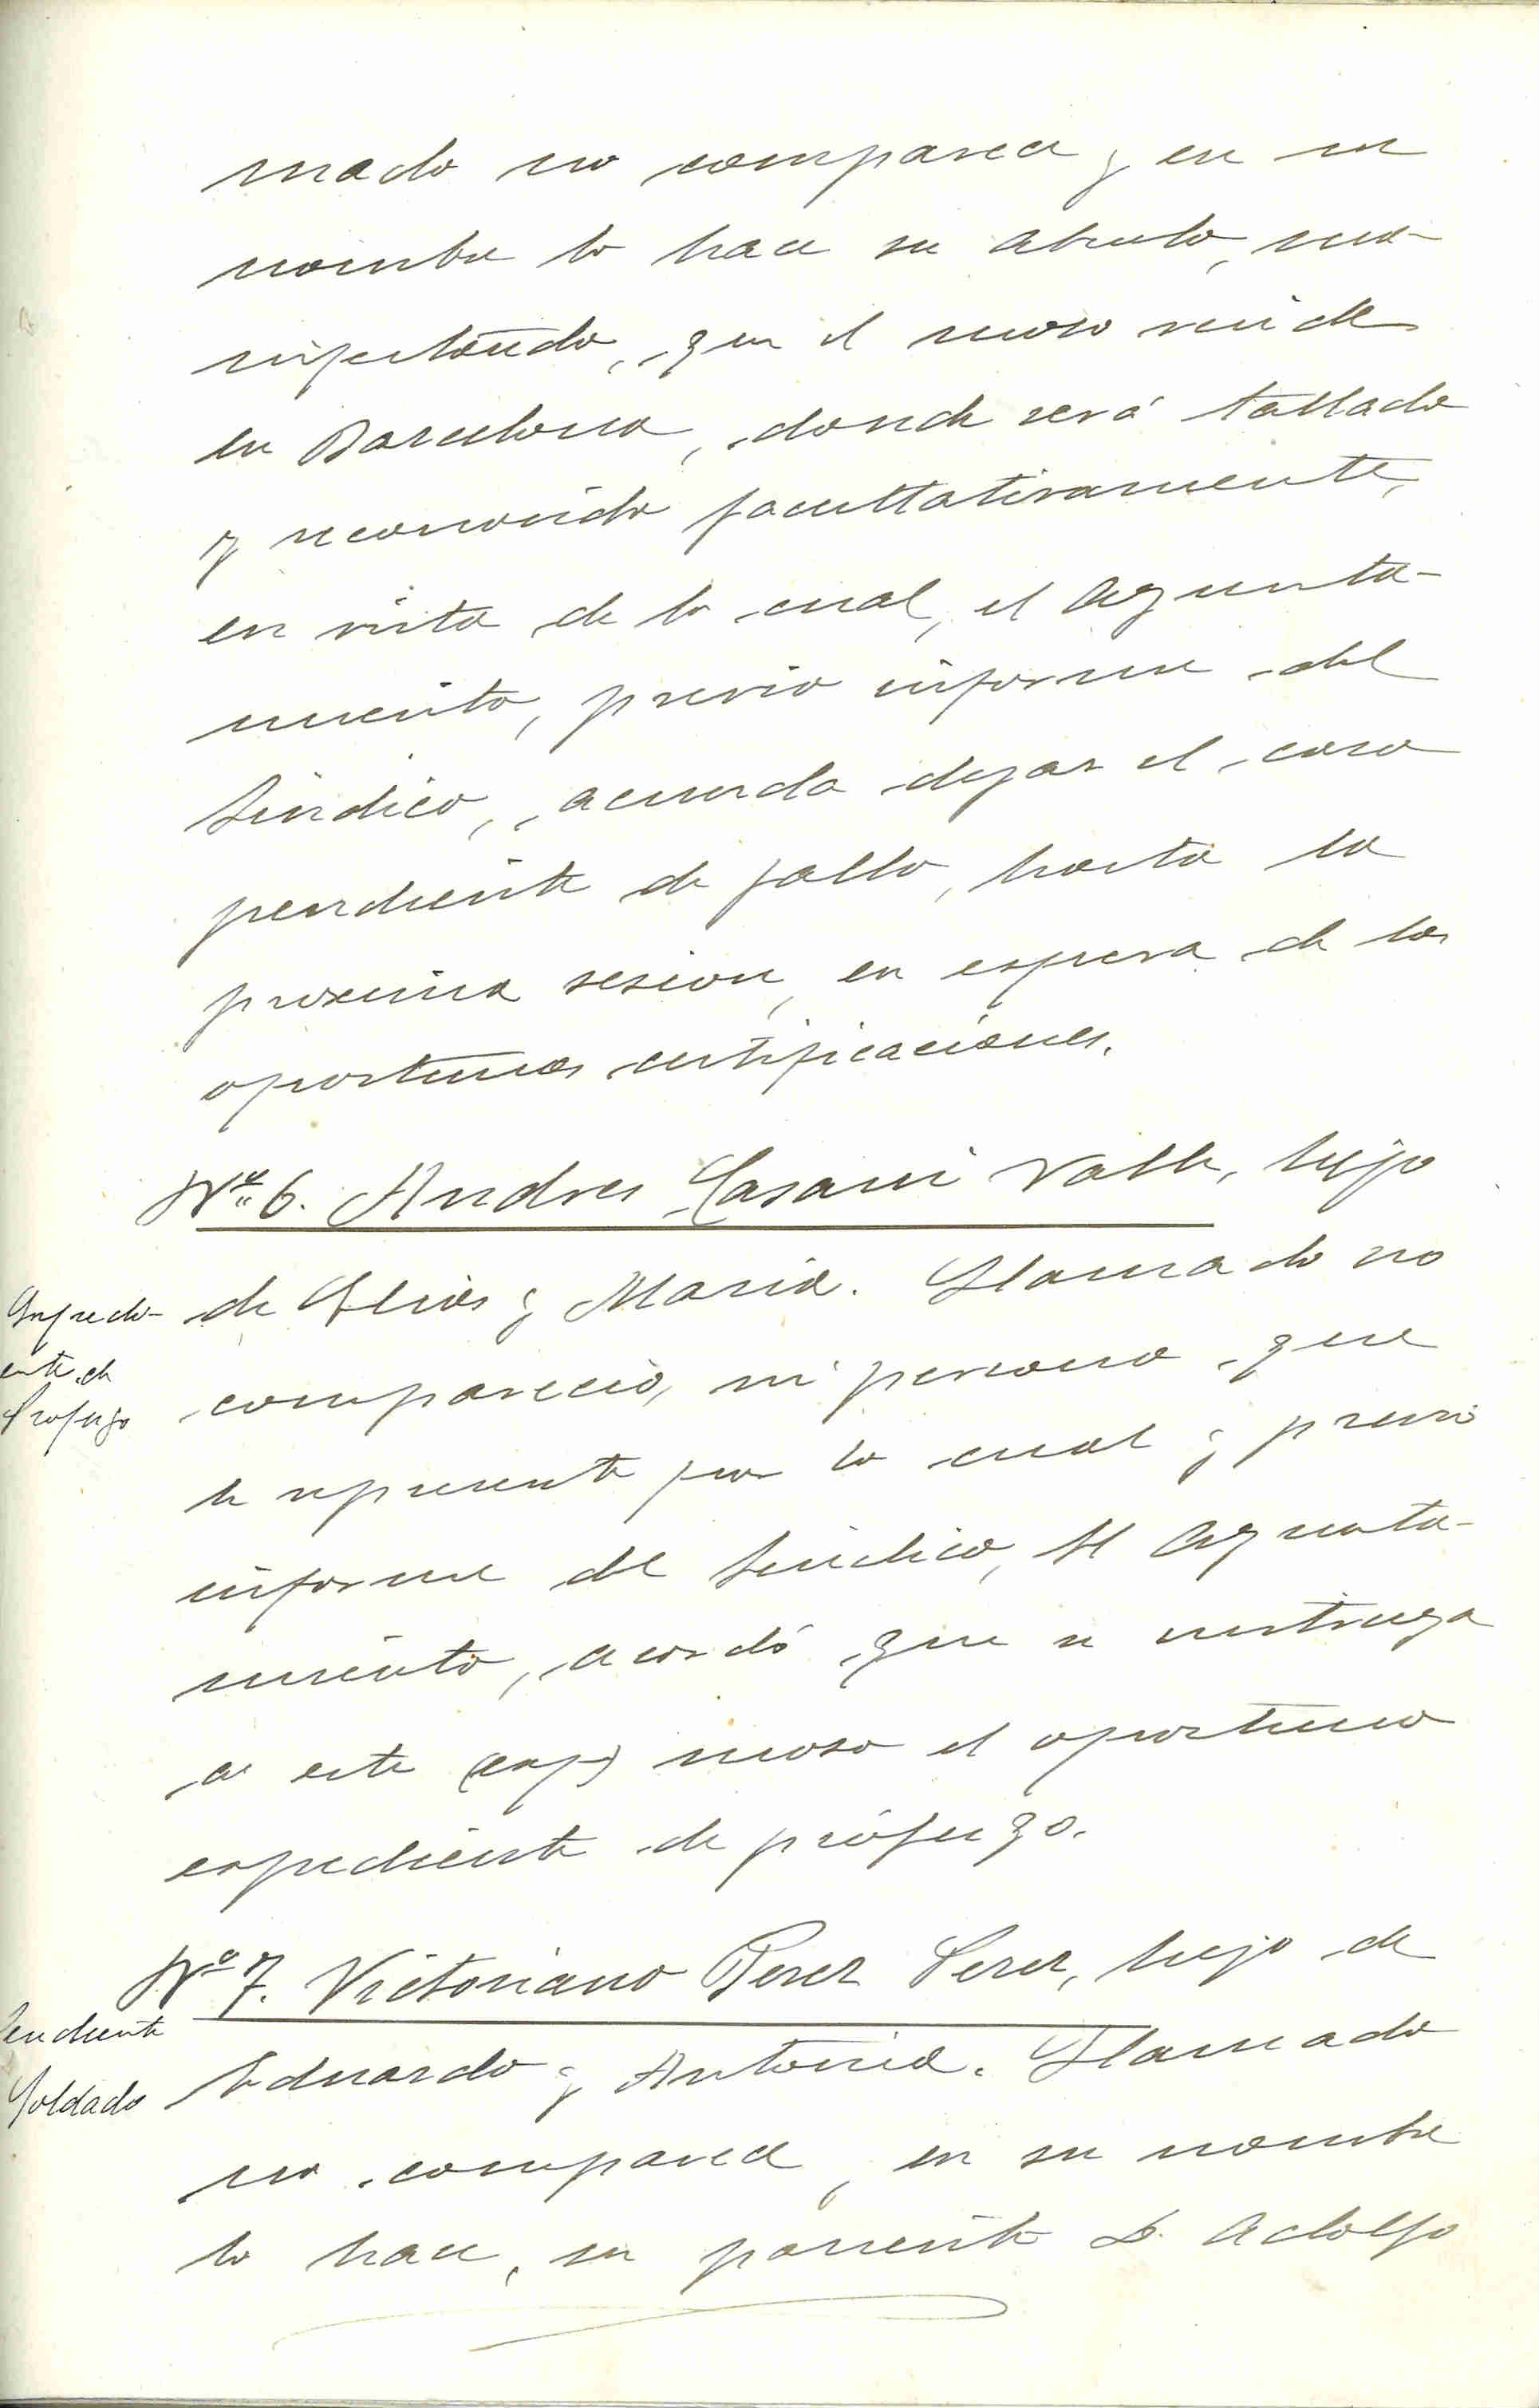 mado no comparece y en su
nombre lo hace su abuelo, ma-
nifestando, que el mozo reside
en Barcelona, donde será tallado
y reconocido facultativamente,
en vista de lo cual, el Ayunta-
miento, previo informe del
Sindico, acuerda dejar el caso
pendiente de fallo, hasta la
proxima sesion, en espera de las
oportunas certificaciones.
Nº 6. Andres Casani Valle, hijo
de Elias y Maria. Llamado no
Expedi-
ente de
Profugo
compareció, ni persona que
le represente por lo cual y previo
informe del Sindico, el Ayunta-
miento, acordó que se instruya
a este (exp) mozo el oportuno
expediente de prófugo.
Nº 7. Victoriano Perez Perez, hijo de
Pendiente
Soldado
Eduardo y Antonia. Llamado
no comparece, en su nombre
lo hace, su pariente D. Adolfo